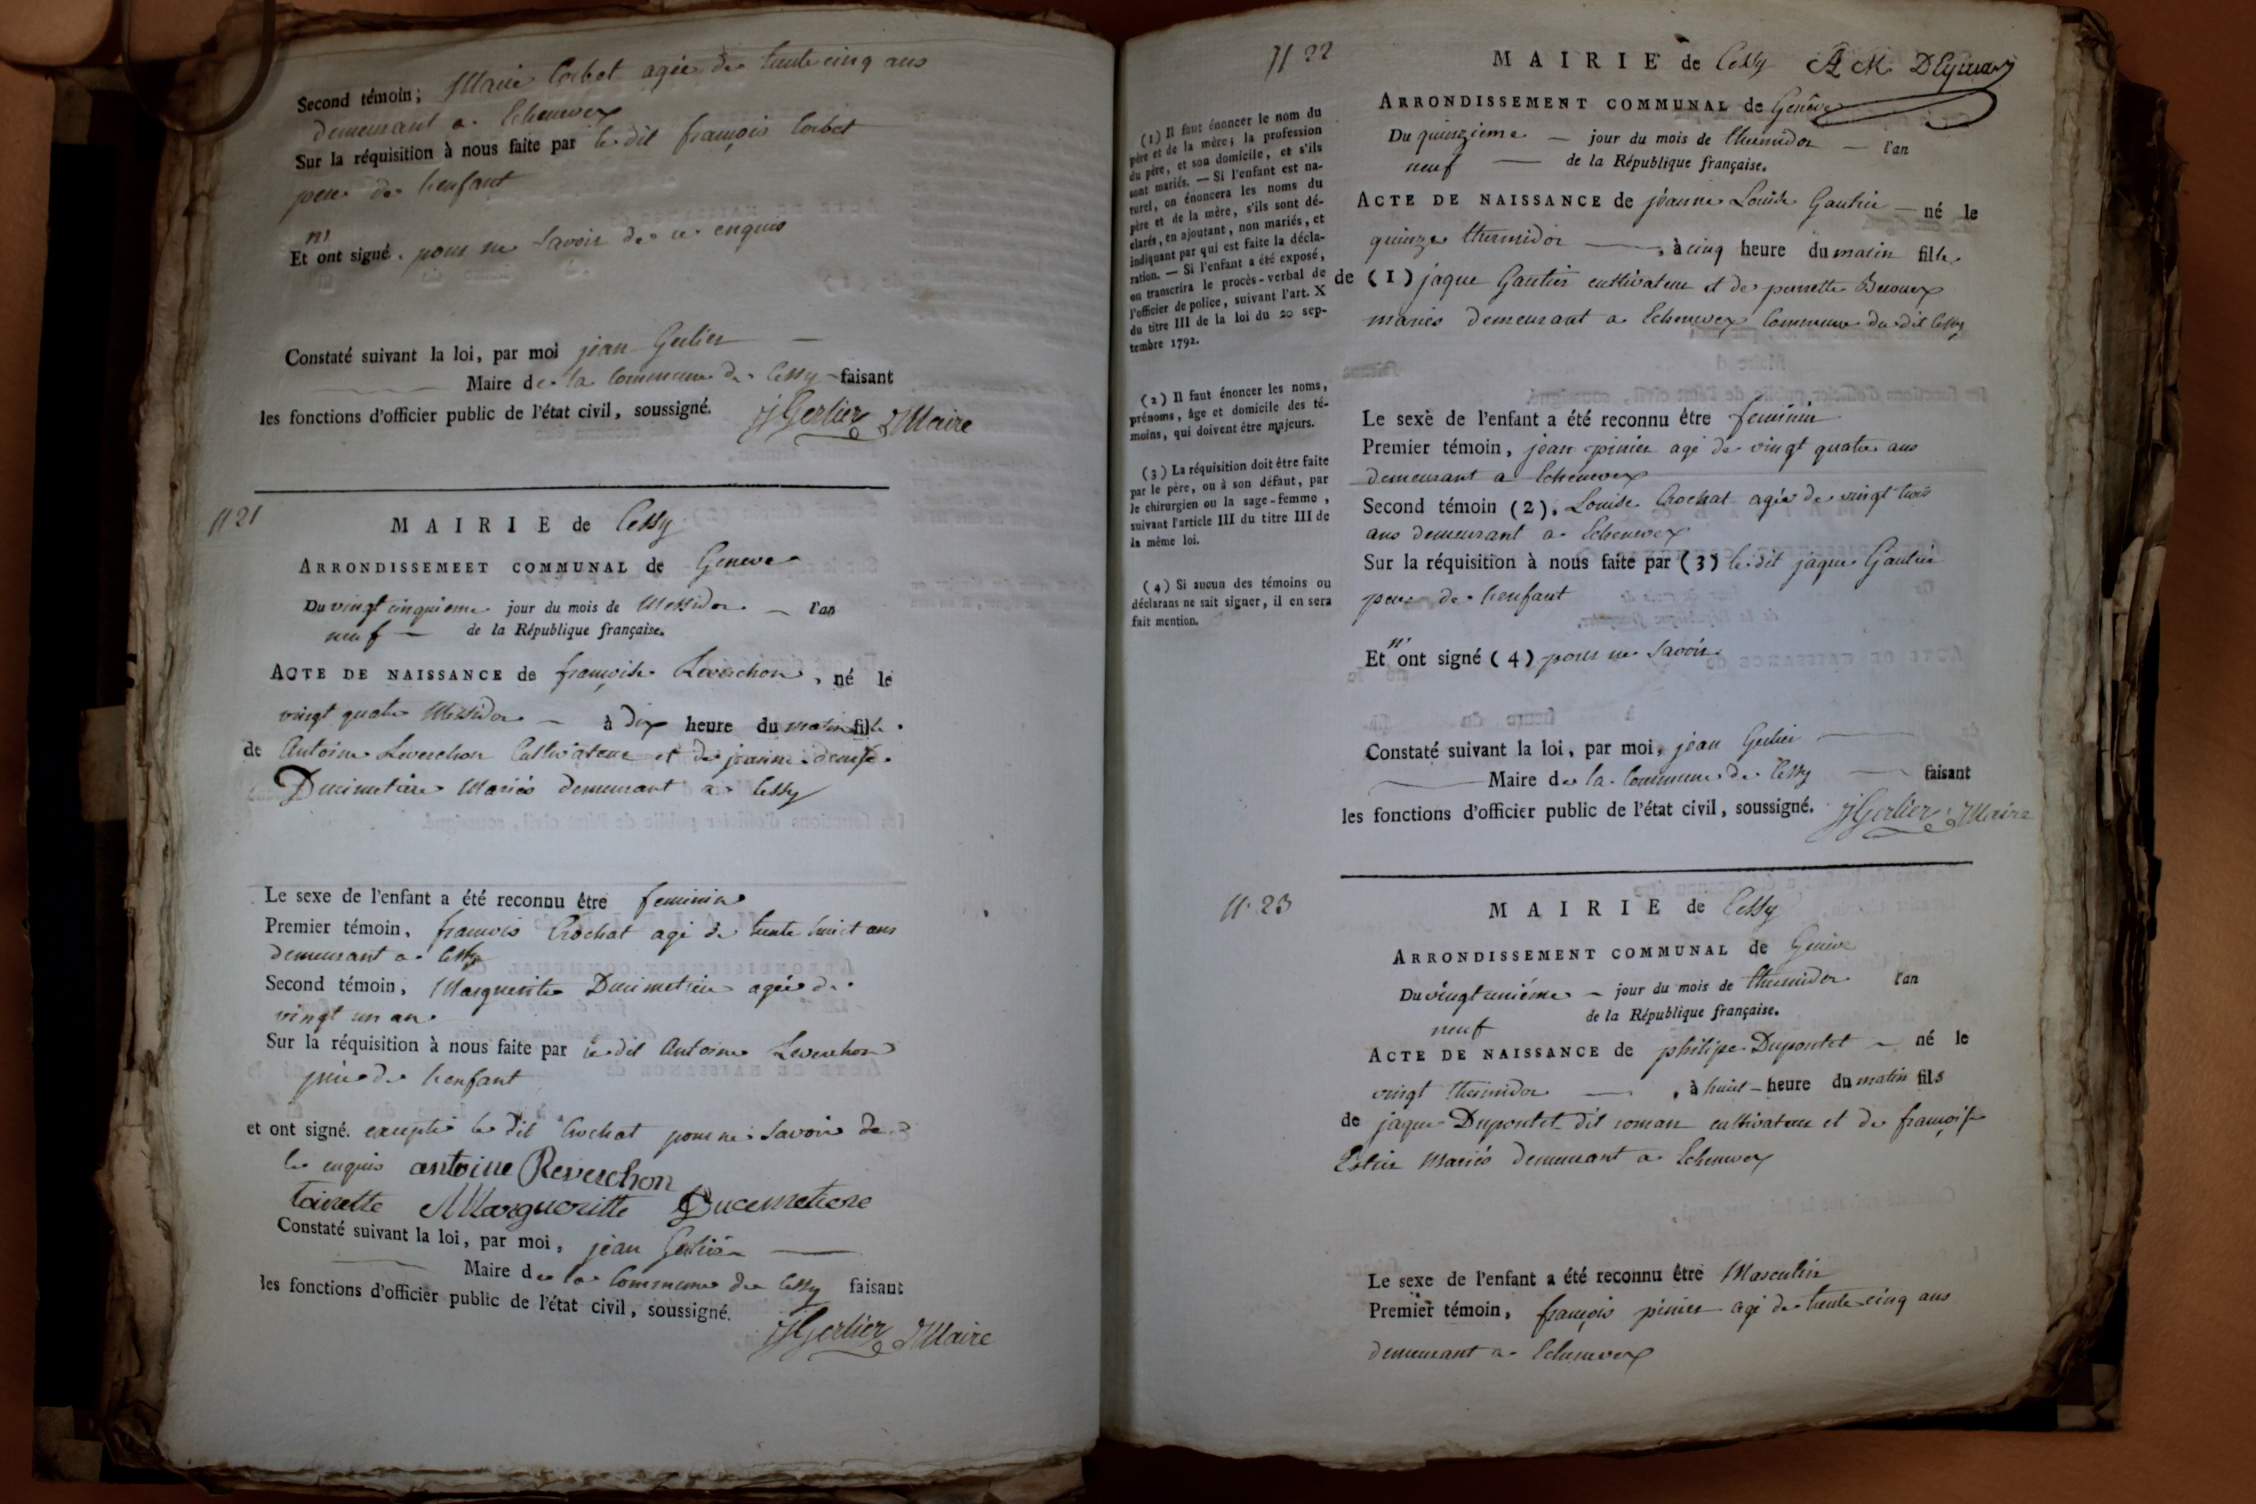 Second témoin; Marie Corbet agée de trente cinq ans
demeurant a Echenevex
Sur la réquisition à nous faite par le dit françois Corbet
pere de l'enfant
n'
Et ont signé. pour ne Savoir de ce enquis
Constaté suivant la loi, par moi jean Gerlier
Maire de la Commune de Cessy faisant
les fonctions d'officier public de l'état civil, soussigné. J Gerlier Maire
N 21
MAIRIE de Cessy
ARRONDISSEMEET COMMUNAL de Geneve
Du vingt cinquieme jour du mois de Messidor l'an
neuf de la République française.
ACTE DE NAISSANCE de françoise Reverchon, né le
vingt quatre Messidor à dix heure du matin fille
de Antoine Reverchon Cultivateur et de jeanne denise
Ducimetiere Mariés demeurant a Cessy
Le sexe de l'enfant a été reconnu être feminin
Premier témoin, francois Crochat agé de trente huict ans
demeurant a Cessy
Second témoin, Marguerite Ducimetiere agée de
vingt un an
Sur la réquisition à nous faite par le dit Antoine Reverchon
père de l'enfant
et ont signé. excepté le dit Crochat pour ne Savoir de
ce enquis antoine Reverchon
Marguoritte Ducemetiere
Constaté suivant la loi, par moi, jean Gerlier
Maire de la Commune de Cessy faisant
les fonctions d'officier public de l'état civil, soussigné.
J Gerlier Maire
N 22
MAIRIE de Cessy A M DEymar
ARRONDISSEMENT COMMUNAL de Genêve
Du quinzieme jour du mois de thermidor l'an
neuf de la République française.
ACTE DE NAISSANCE de jéanne Louise Gautier né le
quinze thermidor, à cinq heure du matin fille
de (1) jaque Gautier cultivateur et de perrette
mariés demeurant a Echenevex Commune du dit Cessy
(1) Il faut énoncer le nom du
père et de la mère; la profession
du père, et son domicile, et s'ils
sont mariés. — Si l'enfant est na-
turel, on énoncera les noms du
père et de la mère, s'ils sont dé-
clarés, en ajoutant, non mariés, et
indiquant par qui est faite la décla-
ration. — Si l'enfant a été exposé,
on transcrira le procès-verbal de
l'officier de police, suivant l'art. X
du titre III de la loi du 20 sep-
tembre 1792.
(2) Il faut énoncer les noms,
prénoms, âge et domicile des té-
moins, qui doivent être majeurs.
(3) La réquisition doit être faite
par le père, ou à son défaut, par
le chirurgien ou la sage-femme,
suivant l'article III du titre III de
la même loi.
(4) Si aucun des témoins ou
déclarans ne sait signer, il en sera
fait mention.
Le sexe de l'enfant a été reconnu être feminin
Premier témoin, jean pinier agé de vingt quatre ans
demeurant a Echenevex
Second témoin (2), Louise Crochat agée de vingt trois
ans demeurant a Echenevex
Sur la réquisition à nous faite par (3) le dit jaque Gautier
pere de l'enfant
n'
Et ont signé (4) pour ne Savoir
Constaté suivant la loi, par moi, jean Gerlier
Maire de la Commune de Cessy faisant
les fonctions d'officier public de l'état civil, soussigné. J Gerlier Maire
N. 23
MAIRIE de Cessy
ARRONDISSEMENT COMMUNAL de Genêve
Du vingt uniéme jour du mois de thermidor l'an
neuf de la République française.
ACTE DE NAISSANCE de philipe Dupontet né le
vingt thermidor, à huict heure du matin fils
de jaque Dupontet dit roman cultivateur et de françoise
Mariés demeurant a Echenevex
Le sexe de l'enfant a été reconnu être Masculin
Premier témoin, françois pinier agé de trente cinq ans
demeurant a Echenevex